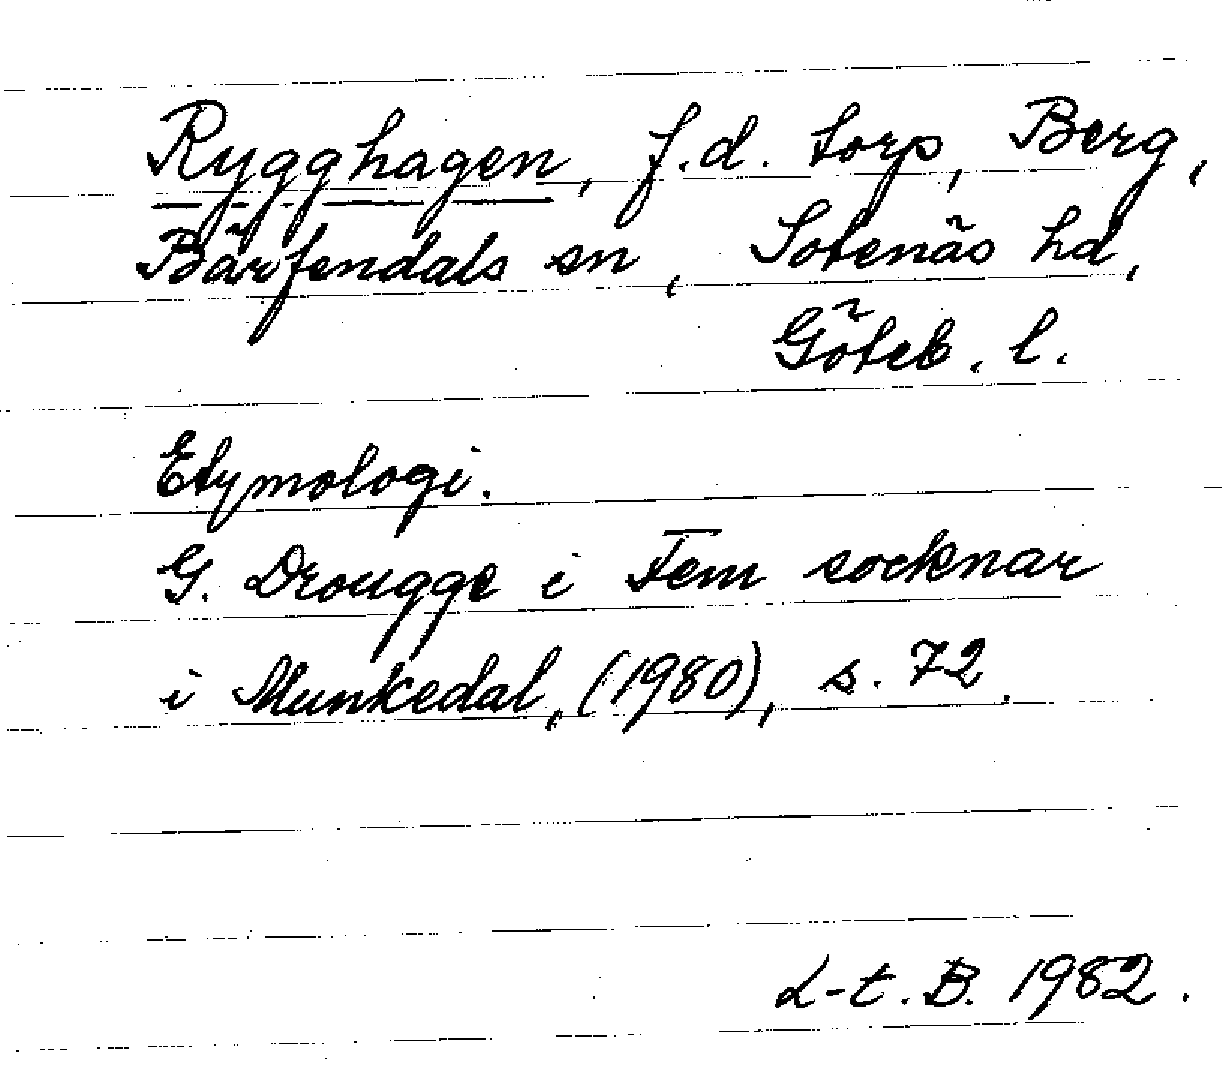 Rygghagen, f.d. torp, Berg,
Bärfendals sn, Sotenäs hd,
Göteb. l.
Etymologi.
G. Drougge i Fem socknar
i Munkedal, (1980), s. 72.
L-t. B. 1982.